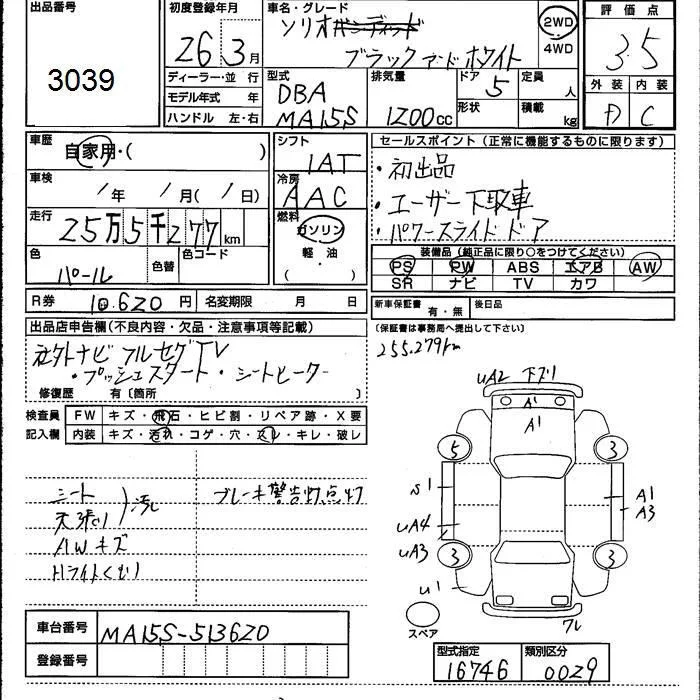 出品番号
3039
初度登録年月
26 3月
ディーラー・並 行
モデル年式 年
ハンドル 左・右
車名・グレード
ソリオ
ブラック アンド ホワイト
2WD
4WD
型式
DBA
MA15S
排気量
1200cc
ドア 5
形状
定員 人
積載 kg
評価点
3.5
外装 内装
D C
車歴
自家用・( )
車検
年 月( 日)
走行
25万5千277km
色
パール
色替
色コード
シフト
IAT
冷房
AAC
燃料
ガソリン
・
軽油
( )
セールスポイント(正常に機能するものに限ります)
・初出品
・エーザー下取車
・パワースライドドア
装備品(純正品に限り○をつけてください)
PS PW ABS エアB AW
SR ナビ TV カワ
R券 10.620円 名変期限 月 日
新車保証書 有・無 後日品
(保証書は事務局へ提出して下さい)
255.279km
出品店申告欄(不良内容・欠品・注意事項等記載)
社外ナビ フルセグTV
・プッシュスタート・シートヒーター
修復歴 有〔箇所 〕
検査員
記入欄
FW キズ・飛石・ヒビ割・リペア跡・X要
内装 キズ・汚れ・コゲ・穴・スレ・キレ・破レ
シート
天張り
汚れ
AWキズ
Hライトくもり
ブレーキ警告灯点灯
UA2 下ズリ
A1
A1
5 3
S1
UA4
UA3
A1
A3
3 3
U1
スペア
フレ
車台番号 MA15S-513620
登録番号
型式指定 16746
類別区分 0029